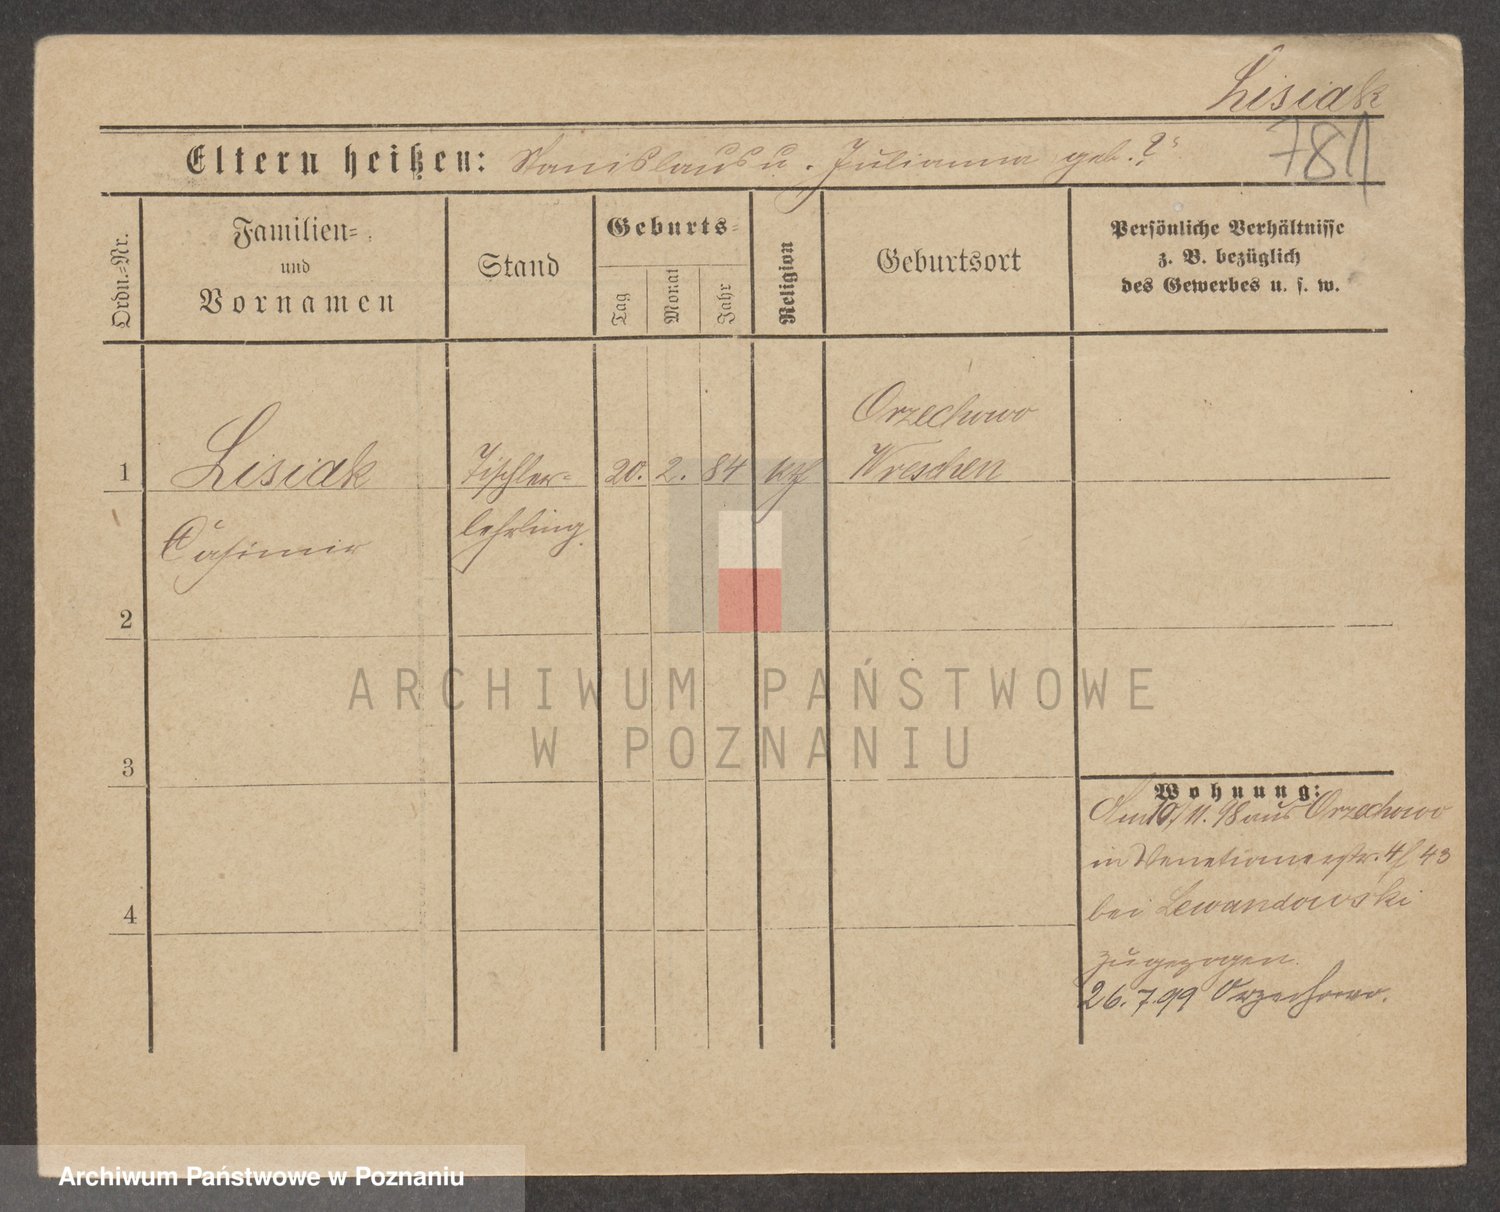 Lisiak
781
Eltern heißen: Stanislaus u. Julianna geb. ?
Ordn.=Nr.
Familien=
und
Vornamen
Stand
Geburts=
Tag
Monat
Jahr
Religion
Geburtsort
Persönliche Verhältnisse
z. B. bezüglich
des Gewerbes u. s. w.
Orzechowo
1 Lisiak Tischler= 20. 2. 84 kth Wreschen
Casimir lehrling.
2
ARCHIWUM PAŃSTWOWE
W POZNANIU
3
Wohnung:
Am 10/11. 98 aus Orzechowo
in Venetianerstr. 43
bei Lewandowski
4
zugezogen.
26.7.99 Orzechowo.
Archiwum Państwowe w Poznaniu